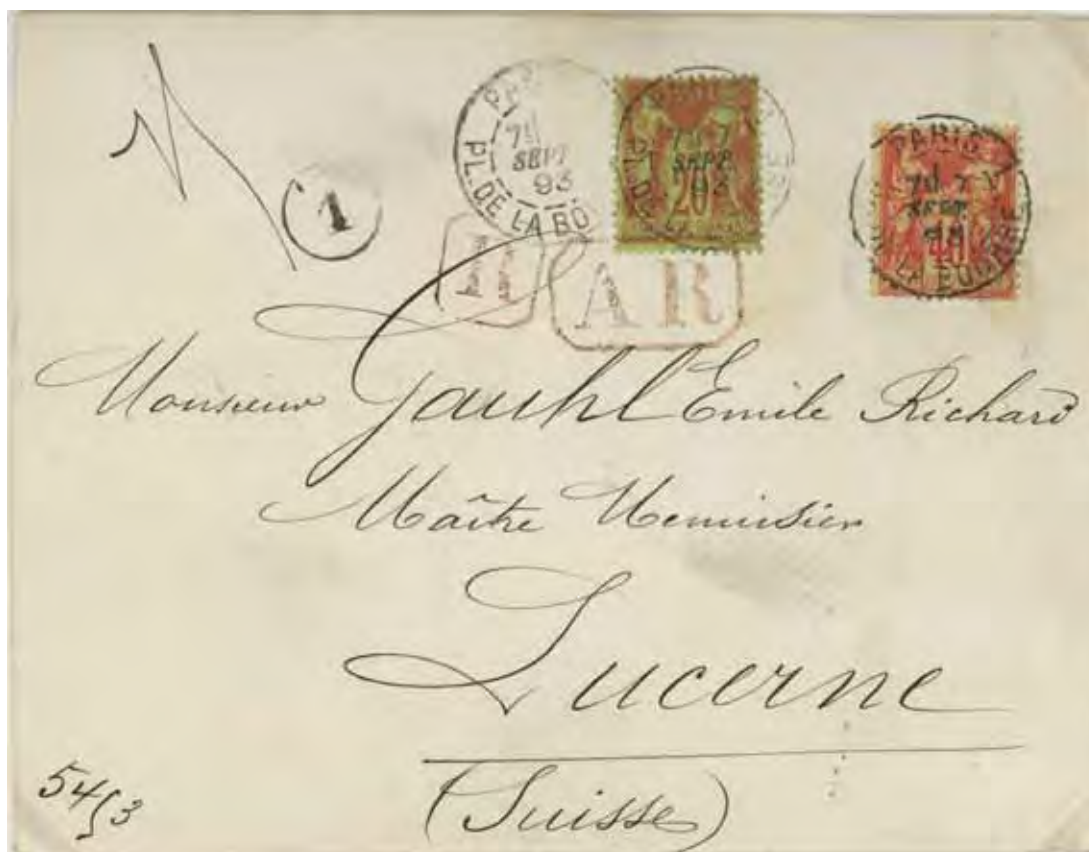 PARIS
7E
SEPT
93
PL. DE LA BO
7E 7
SEPT
93
20
PARIS
7E 7
SEPT
LA BOURSE
1
R
AR
Monsieur Gauhl Emile Richard
Maître Menuisier
Lucerne
(Suisse)
54